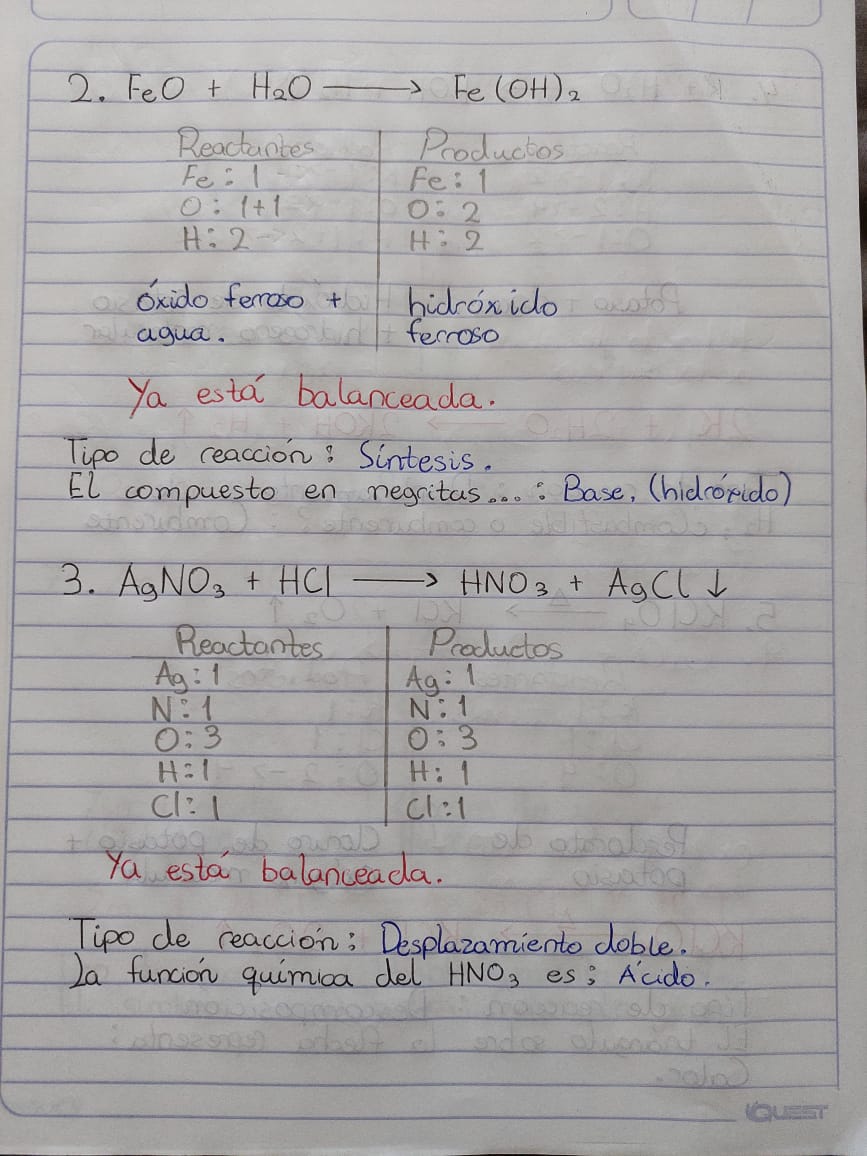 2. FeO + H₂O ⟶ Fe(OH)₂
Reactantes Productos
Fe: 1 Fe: 1
O: 1+1 O: 2
H: 2 H: 2
óxido ferroso + hidróxido
agua. ferroso
Ya está balanceada.
Tipo de reacción: Síntesis.
El compuesto en negritas...: Base, (hidróxido)
3. AgNO₃ + HCl ⟶ HNO₃ + AgCl ↓
Reactantes Productos
Ag: 1 Ag: 1
N: 1 N: 1
O: 3 O: 3
H: 1 H: 1
Cl: 1 Cl: 1
Ya está balanceada.
Tipo de reacción: Desplazamiento doble.
La función química del HNO₃ es: Ácido.
QUEST